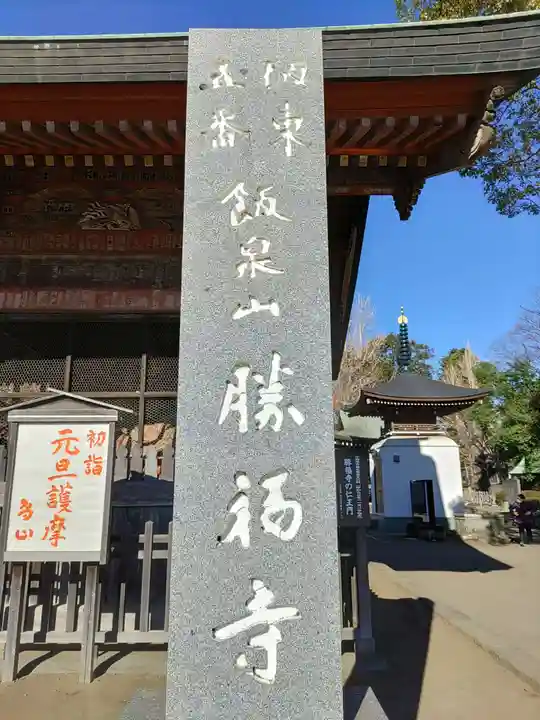 坂東
五番
飯泉山勝福寺
初詣
元旦護摩
勝福寺の仁王門